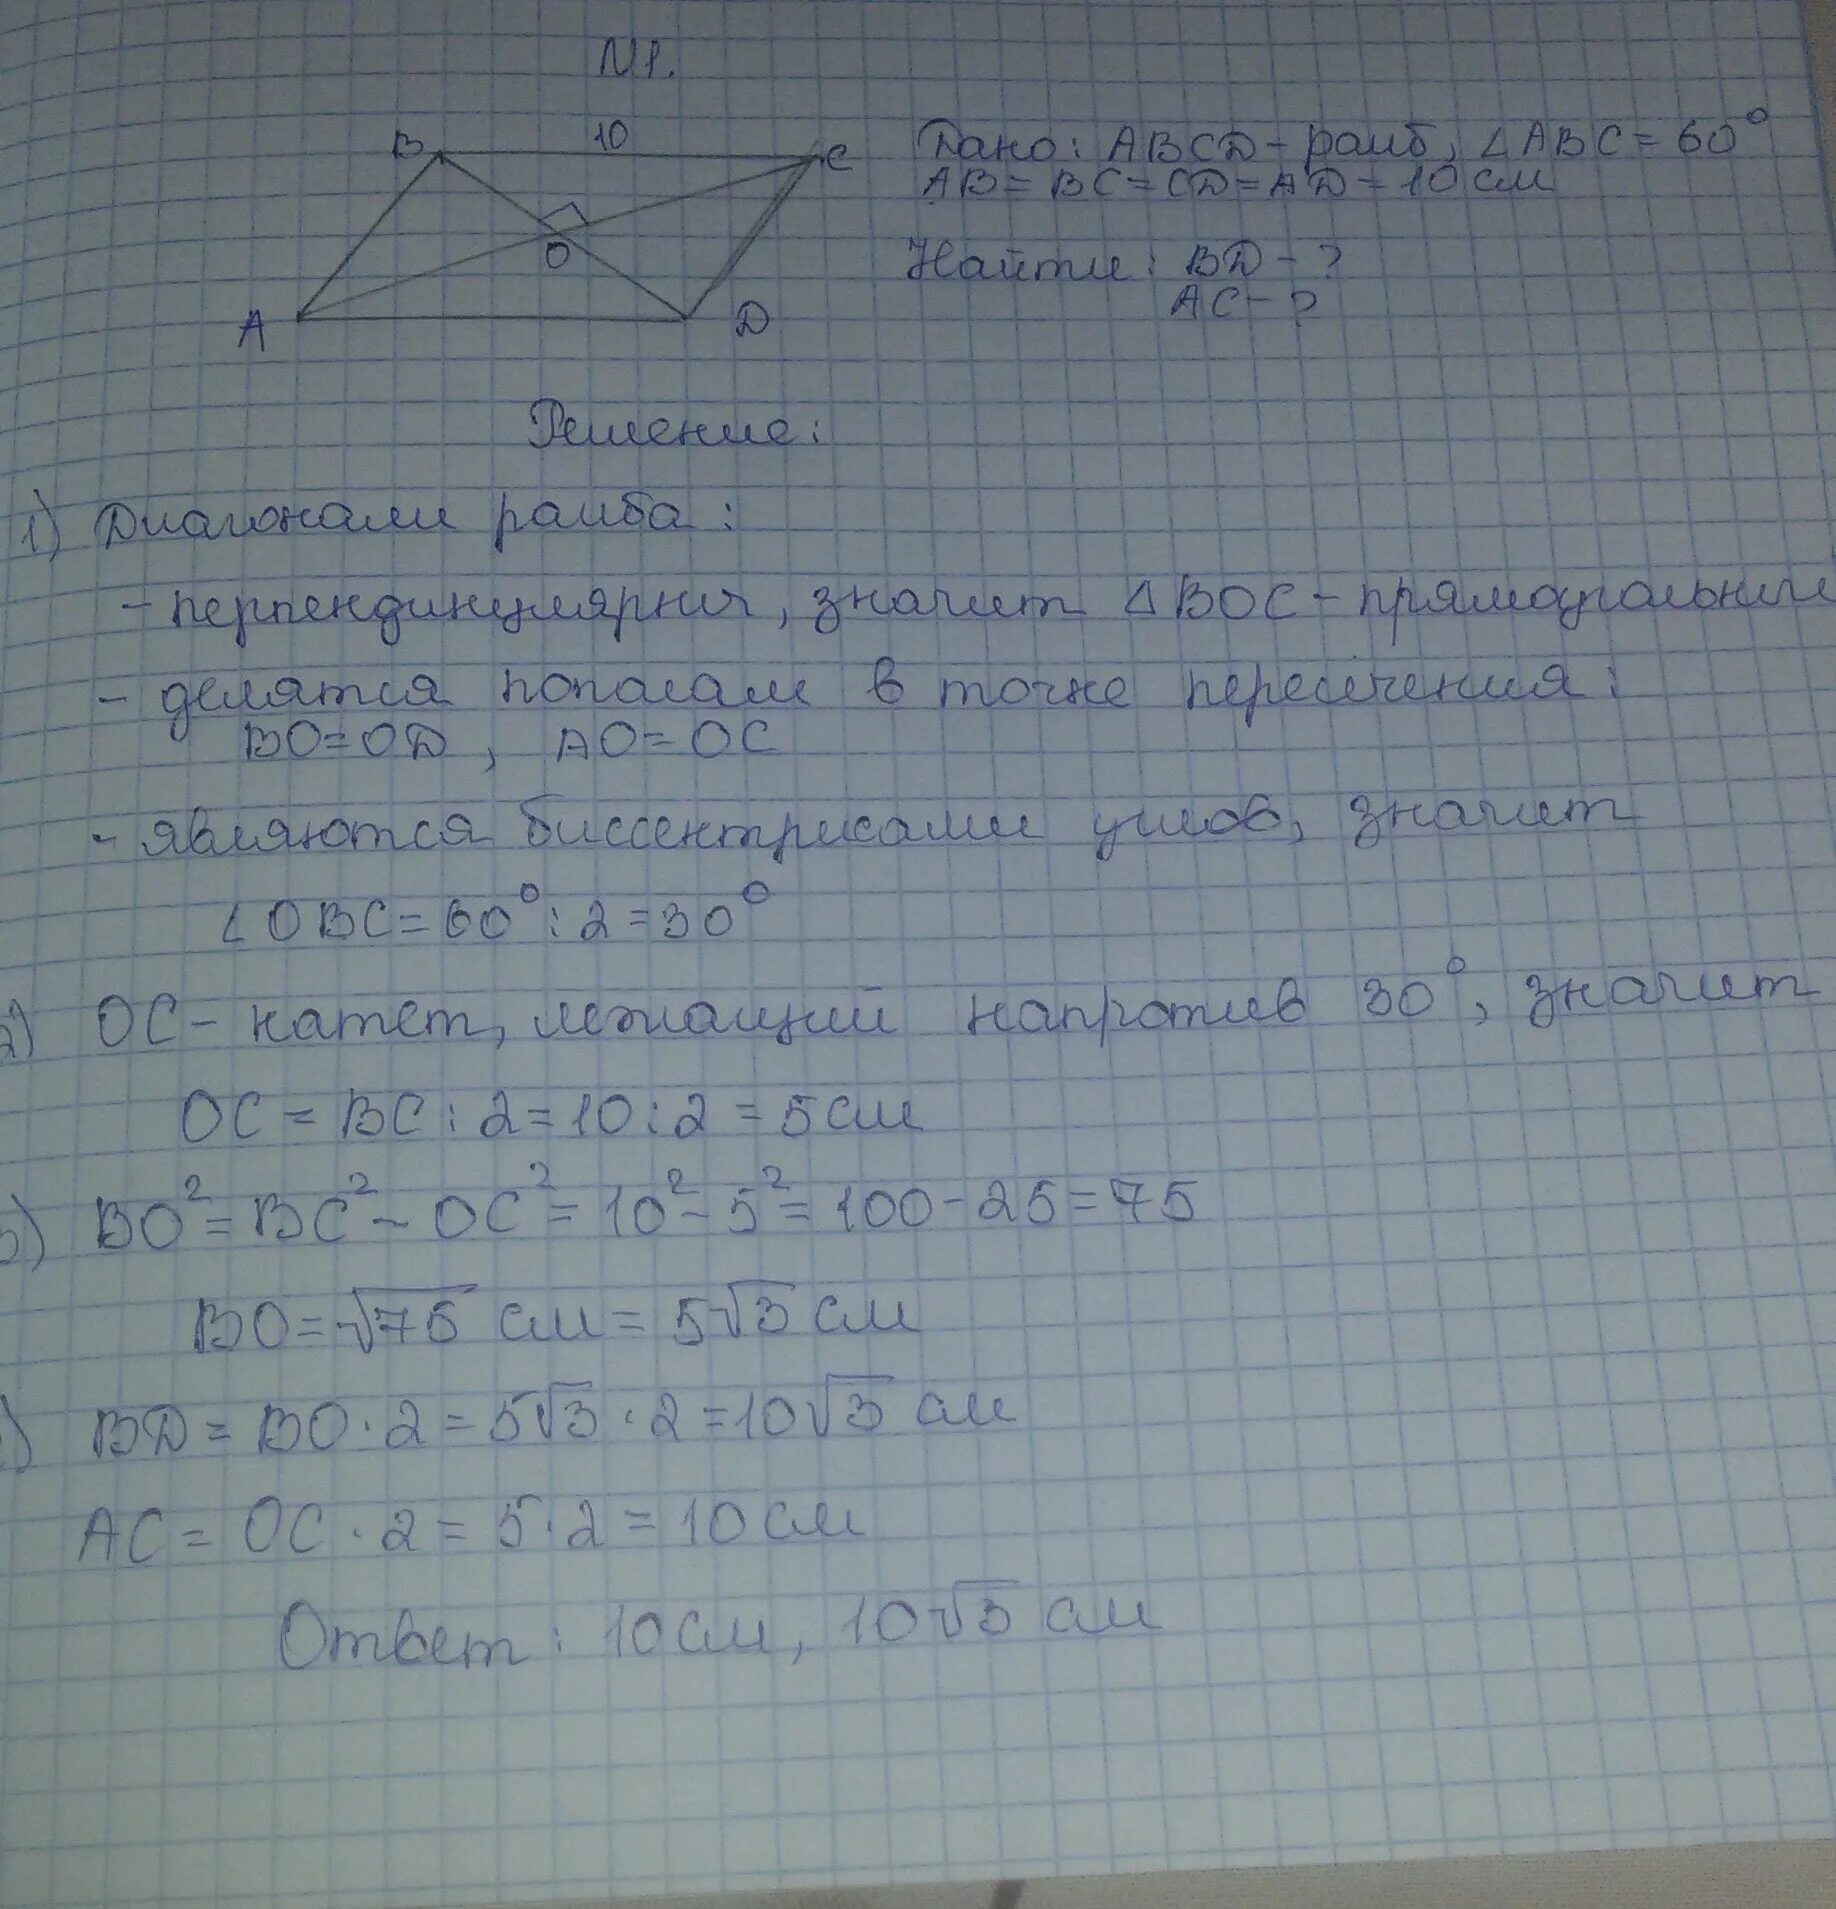 N1.
B 10 C
O
A D
Дано: ABCD - ромб, ∠ABC = 60°
AB = BC = CD = AD = 10 см
Найти: BD - ?
AC - ?
Решение:
1) Диагонали ромба:
- перпендикулярны, значит △BOC - прямоугольный
- делятся пополам в точке пересечения:
BO = OD, AO = OC
- являются биссентрисами углов, значит
∠OBC = 60° : 2 = 30°
2) OC - катет, лежащий напротив 30°, значит
OC = BC : 2 = 10 : 2 = 5 см
3) BO² = BC² - OC² = 10² - 5² = 100 - 25 = 75
BO = √75 см = 5√3 см
) BD = BO · 2 = 5√3 · 2 = 10√3 см
AC = OC · 2 = 5 · 2 = 10 см
Ответ: 10 см, 10√3 см